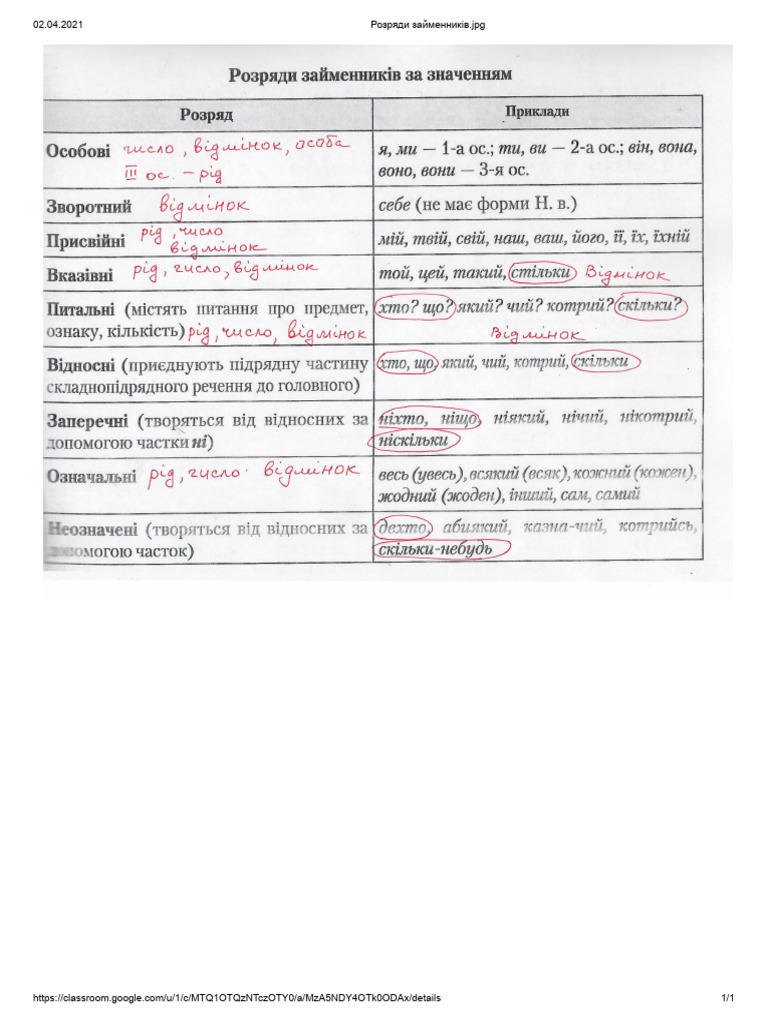 02.04.2021 Розряди займенників.jpg
Розряди займенників за значенням
Розряд Приклади
Особові число, відмінок, особа
III ос. – рід
я, ми — 1-а ос.; ти, ви — 2-а ос.; він, вона,
воно, вони — 3-я ос.
Зворотний відмінок
себе (не має форми Н. в.)
Присвійні рід, число
відмінок
мій, твій, свій, наш, ваш, його, її, їх, їхній
Вказівні рід, число, відмінок
той, цей, такий, стільки Відмінок
Питальні (містять питання про предмет,
ознаку, кількість) рід, число, відмінок
хто? що? який? чий? котрий? скільки?
Відмінок
Відносні (приєднують підрядну частину
складнопідрядного речення до головного)
хто, що, який, чий, котрий, скільки
Заперечні (творяться від відносних за
допомогою частки ні)
ніхто, ніщо, ніякий, нічий, нікотрий,
ніскільки
Означальні рід, число відмінок
весь (увесь), всякий (всяк), кожний (кожен),
жодний (жоден), інший, сам, самий
Неозначені (творяться від відносних за
допомогою часток)
дехто, абиякий, казна-чий, котрийсь,
скільки-небудь
https://classroom.google.com/u/1/c/MTQ1OTQzNTczOTY0/a/MzA5NDY4OTk0ODAx/details 1/1